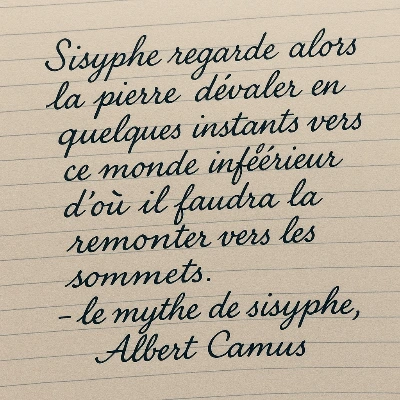 Sisyphe regarde alors
la pierre dévaler en
quelques instants vers
ce monde inféérieur
d'où il faudra la
remonter vers les
sommets.
- le mythe de sisyphe,
Albert Camus